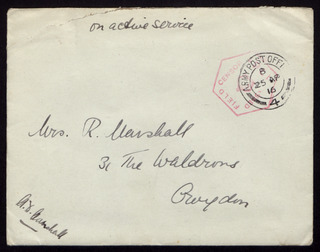 on active service
FIELD CENSOR
ARMY POST OFFI
8
25 AP
16
4
Mrs. R. Marshall
31 The Waldrons
Croydon
Marshall